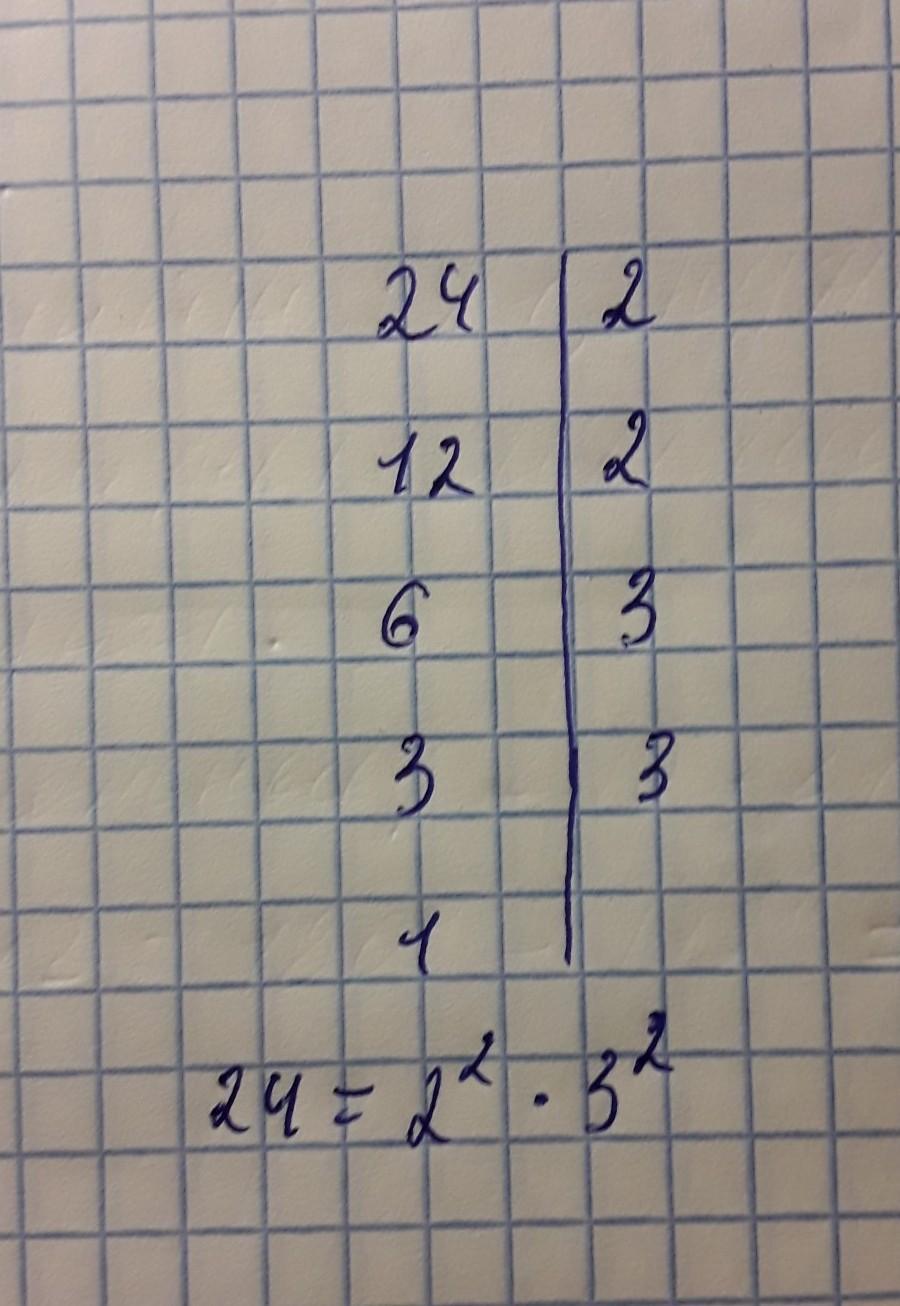 24 | 2
12 | 2
6 | 3
3 | 3
1 |
24 = 2² · 3²